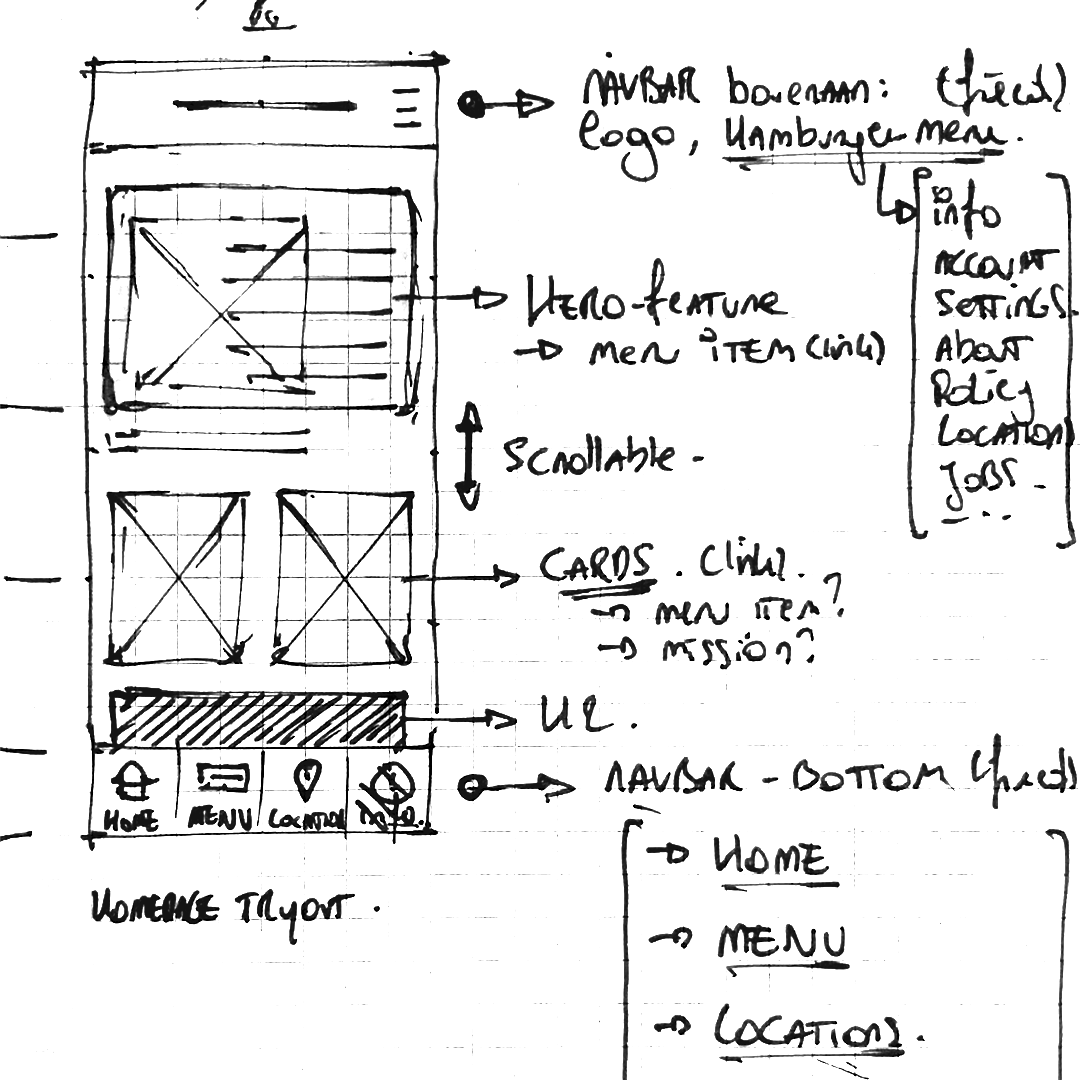 NAVBAR bovenaan: (fixed)
logo, Hamburger menu.
info
ACCOUNT
SETTINGS.
ABOUT
Policy
LOCATIONS
JOBS.
HERO-feature
→ menu ITEM (link)
Scrollable.
CARDS. (link).
→ menu item?
→ mission?
HOME MENU LOCATION
NAVBAR - BOTTOM (fixed)
→ HOME
→ MENU
→ LOCATIONS.
HOMEPAGE TRYOUT.